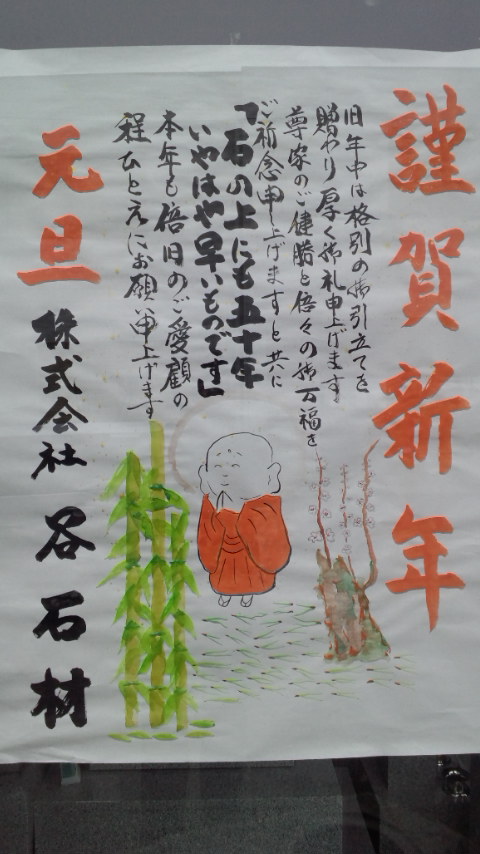 謹賀新年
旧年中は格別の御引立てを
贈わり厚く御礼申上げます
尊家のご健勝と倍々の御万福を
ご祈念申し上げますと共に
「石の上にも五十年
いやはや早いものです」
本年も倍旧のご愛顧の
程ひとえにお願い申上げます
元旦
株式会社 谷石材